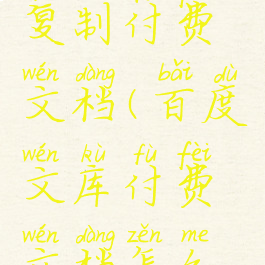 复制付费
wén dàng bǎi dù
文档(百度
wén kù fù fèi
文库付费
wén dàng zěn me
文档怎么